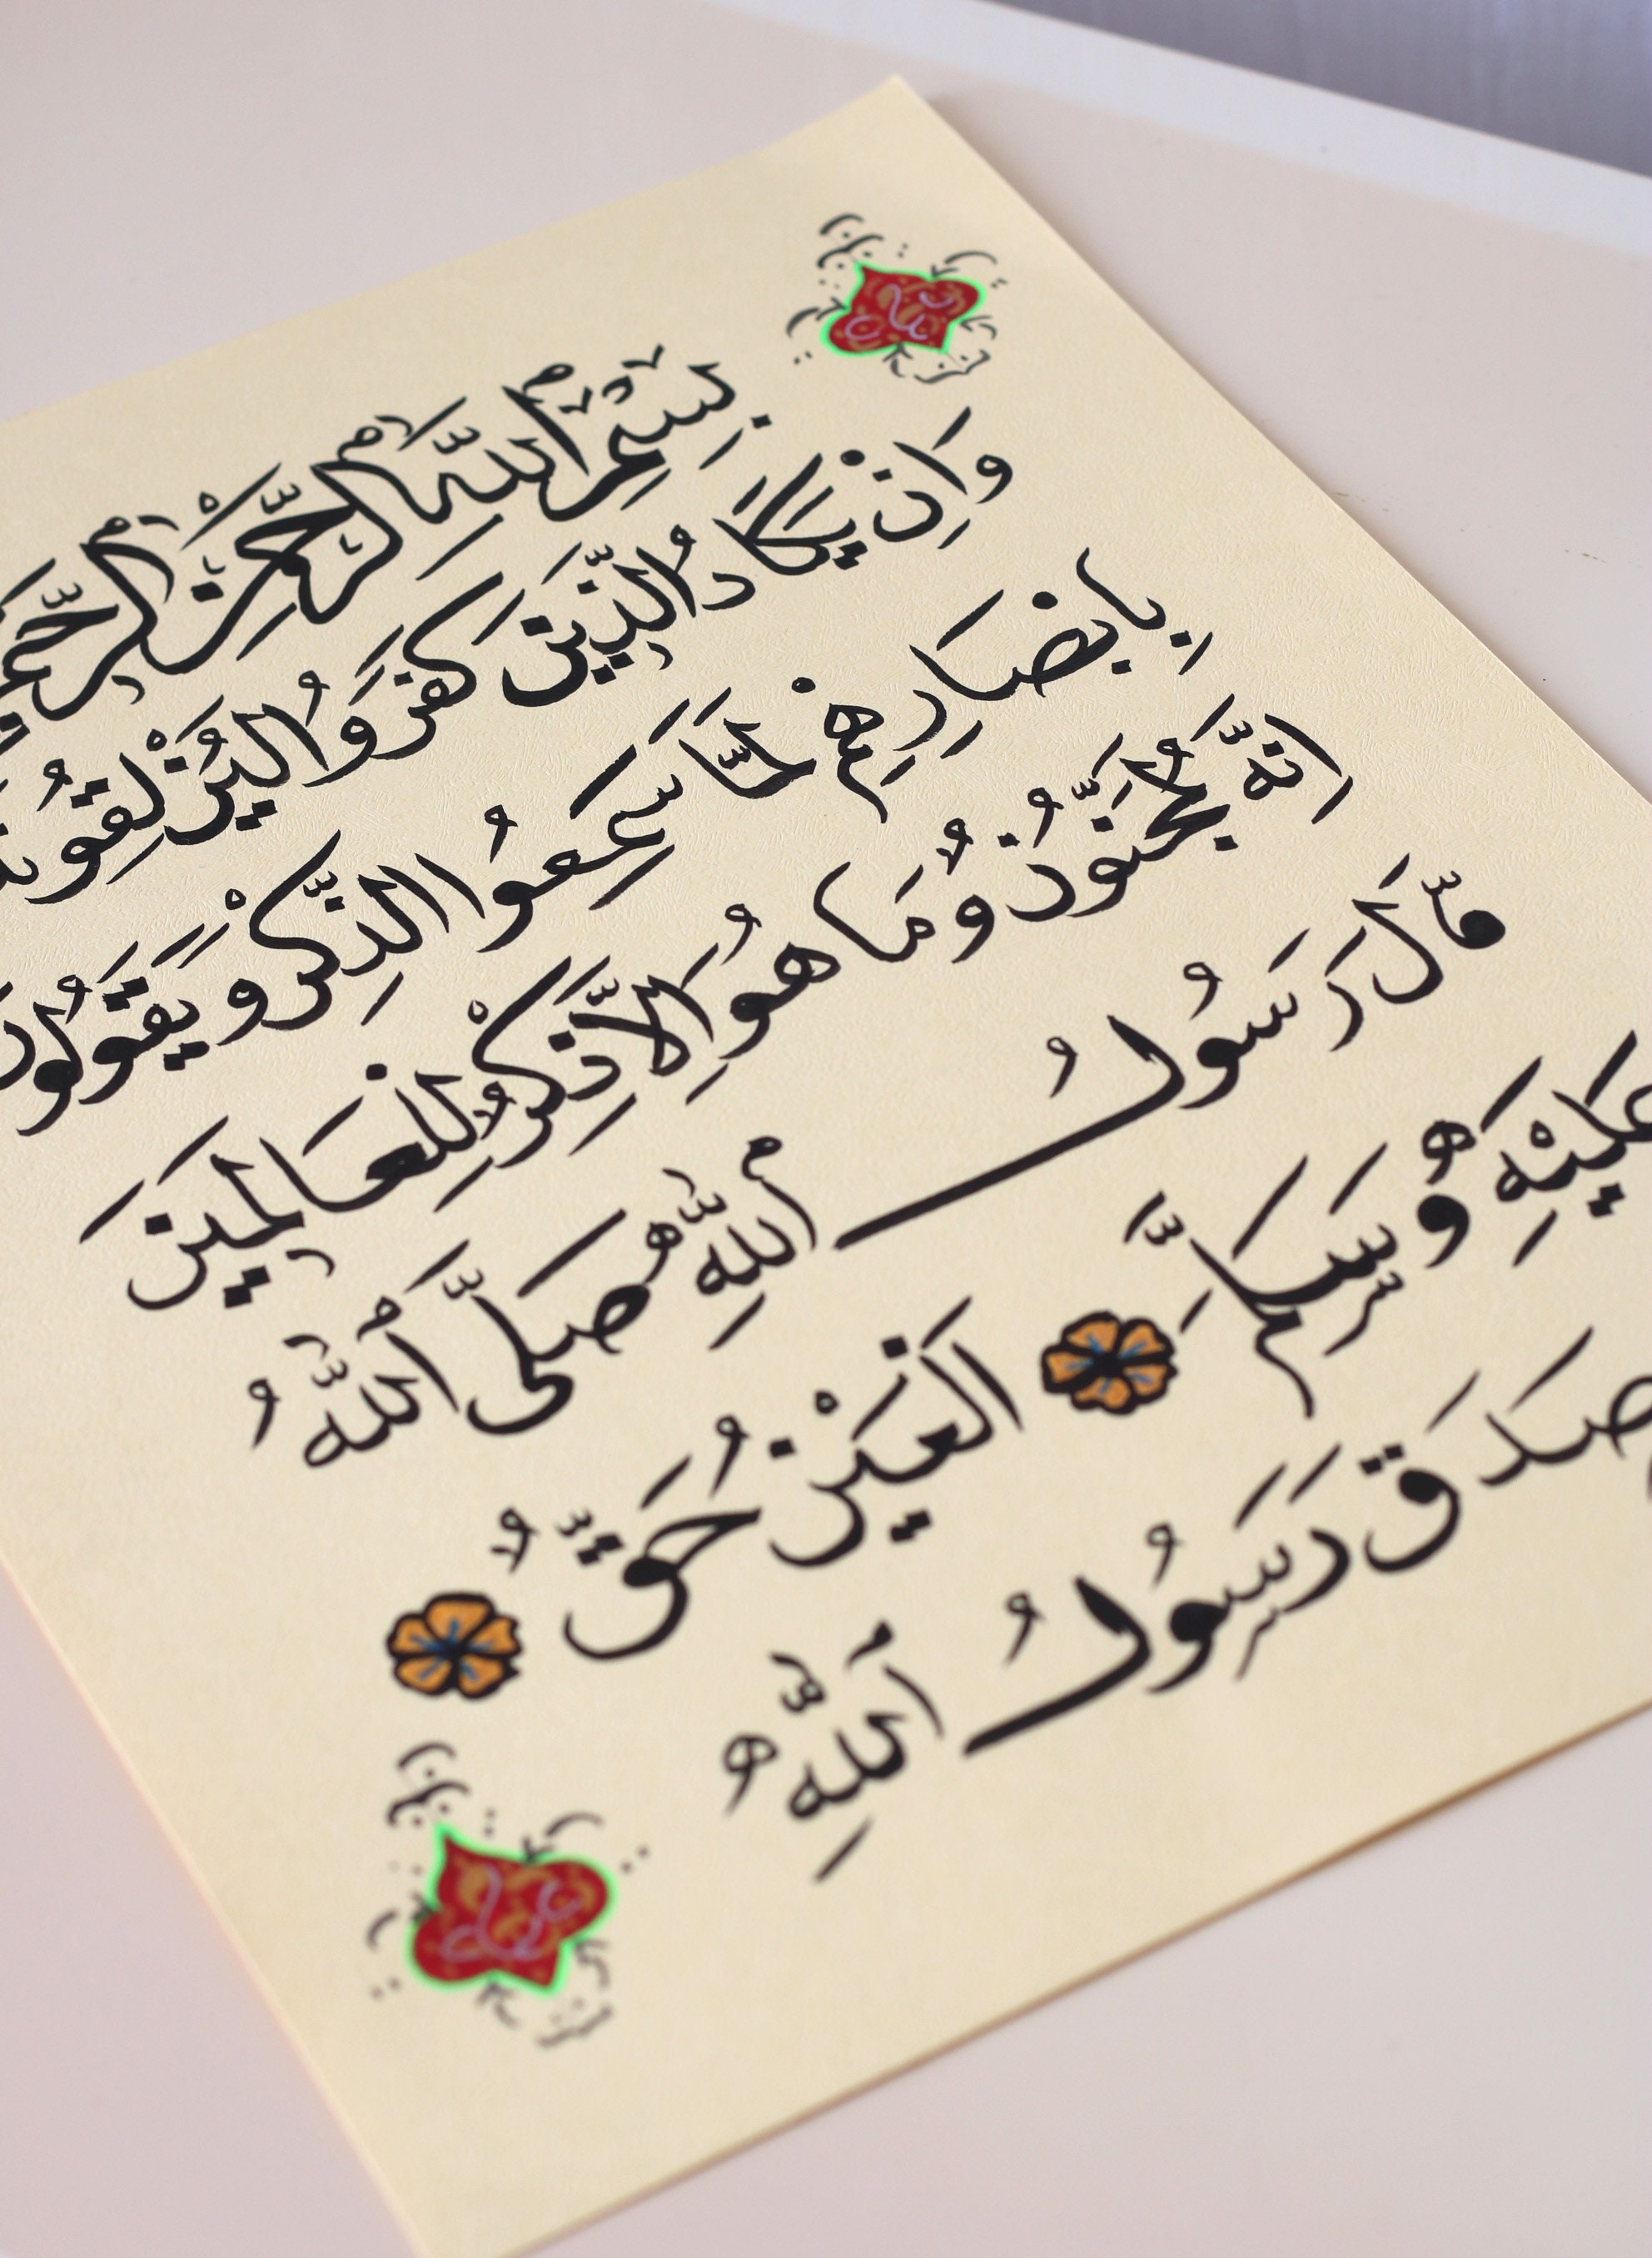 بِسْمِ اللَّهِ الرَّحْمَنِ الرَّحِيمِ
وَاِنْ يَكَادُ الَّذِينَ كَفَرَوُا لَيُزْلِقُونَكَ
بِاَبْصَارِهِمْ لَمَّا سَمِعُوا الذِّكْرَ وَيَقُولُونَ
اِنَّهُ لَمَجْنُونٌ وَمَا هُوَ اِلاَّ ذِكْرٌ لِلْعَالَمِينَ
قَالَ رَسُولُ اللهِ صَلَّى اللهُ
عَلَيْهِ وَسَلَّمَ الْعَيْنُ حَقٌّ
صَدَقَ رَسُولُ اللهِ